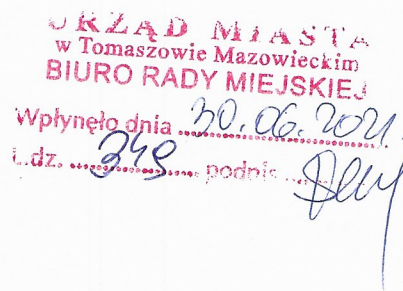 URZĄD MIASTA
w Tomaszowie Mazowieckim
BIURO RADY MIEJSKIEJ
Wpłynęło dnia 30.06.2021.
L.dz. 349 podpis